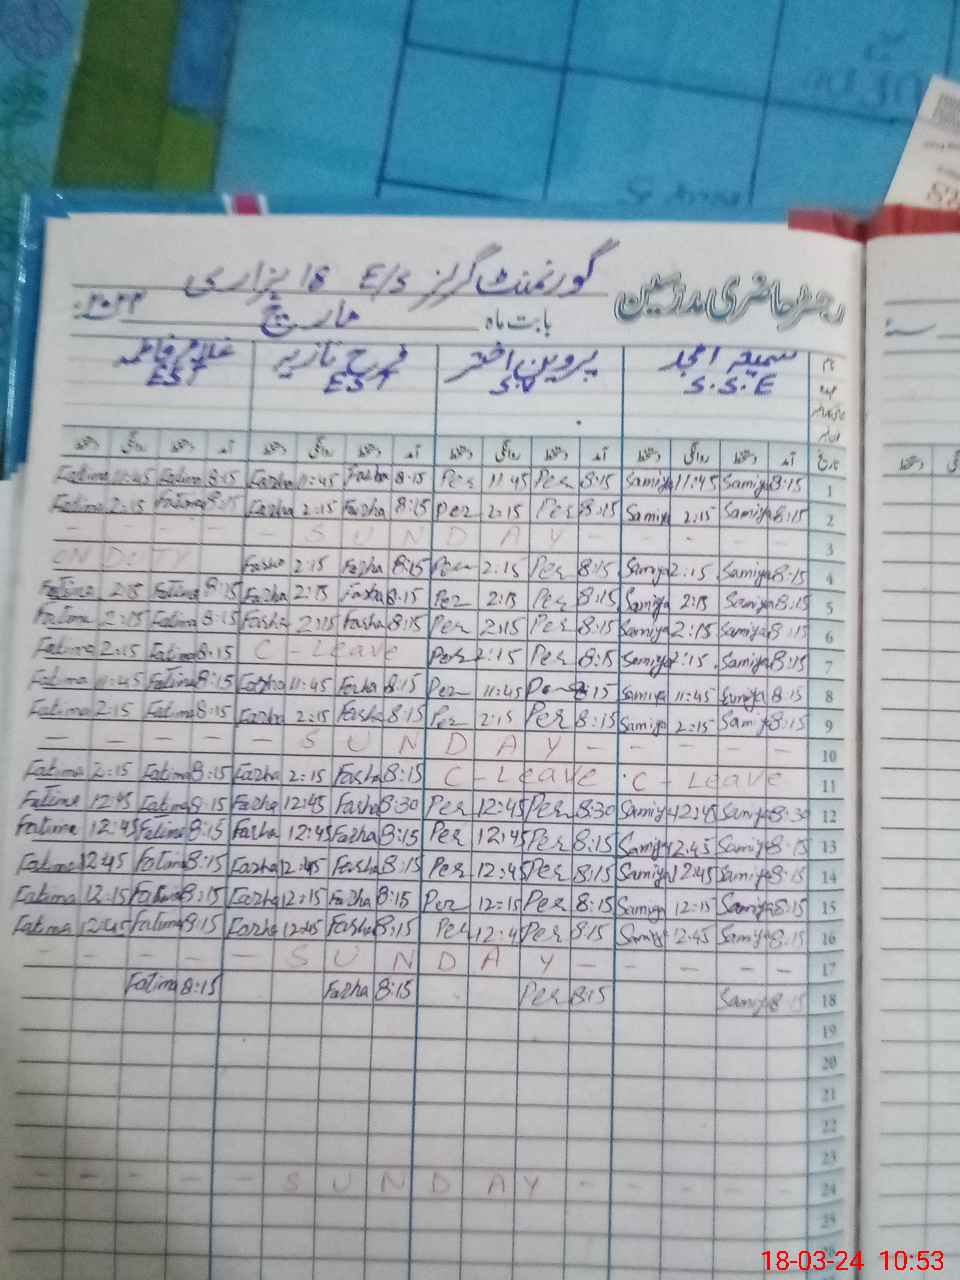 رجسٹر حاضری مدرسین گورنمنٹ گرلز E/S 18 ہزاری
بابت ماہ مارچ ۲۰۲۴
نام سمیہ امجد پروین اختر فرح نازیہ غلام فاطمہ
عہدہ S.S.E S.V EST EST
تاریخ آمد دستخط روانگی دستخط آمد دستخط روانگی دستخط آمد دستخط روانگی دستخط آمد دستخط روانگی دستخط
Fatima 11:45 Fatima 8:15 Farha 11:45 Farha 8:15 Per 11:45 Per 8:15 Samiya 11:45 Samiya 8:15 1
Fatima 2:15 Fatima 8:15 Farha 2:15 Farha 8:15 Per 2:15 Per 8:15 Samiya 2:15 Samiya 8:15 2
- - - - - S U N D A Y - - - - - 3
ON DUTY Farha 2:15 Farha 8:15 Per 2:15 Per 8:15 Samiya 2:15 Samiya 8:15 4
Fatima 2:15 Fatima 8:15 Farha 2:15 Farha 8:15 Per 2:15 Per 8:15 Samiya 2:15 Samiya 8:15 5
Fatima 2:15 Fatima 8:15 Farha 2:15 Farha 8:15 Per 2:15 Per 8:15 Samiya 2:15 Samiya 8:15 6
Fatima 2:15 Fatima 8:15 C - Leave Per 2:15 Per 8:15 Samiya 2:15 Samiya 8:15 7
Fatima 11:45 Fatima 8:15 Farha 11:45 Farha 8:15 Per 11:45 Per 8:15 Samiya 11:45 Samiya 8:15 8
Fatima 2:15 Fatima 8:15 Farha 2:15 Farha 8:15 Per 2:15 Per 8:15 Samiya 2:15 Samiya 8:15 9
- - - - - S U N D A Y - - - - - 10
Fatima 2:15 Fatima 8:15 Farha 2:15 Farha 8:15 C - Leave C - Leave 11
Fatima 12:45 Fatima 8:15 Farha 12:45 Farha 8:30 Per 12:45 Per 8:30 Samiya 12:45 Samiya 8:30 12
Fatima 12:45 Fatima 8:15 Farha 12:45 Farha 8:15 Per 12:45 Per 8:15 Samiya 12:45 Samiya 8:15 13
Fatima 12:45 Fatima 8:15 Farha 12:45 Farha 8:15 Per 12:45 Per 8:15 Samiya 12:45 Samiya 8:15 14
Fatima 12:15 Fatima 8:15 Farha 12:15 Farha 8:15 Per 12:15 Per 8:15 Samiya 12:15 Samiya 8:15 15
Fatima 12:45 Fatima 8:15 Farha 12:45 Farha 8:15 Per 12:4 Per 8:15 Samiy 12:45 Samiya 8:15 16
- - - - - S U N D A Y - - - - - 17
Fatima 8:15 Farha 8:15 Per 8:15 Samiya 8:15 18
19
20
21
22
23
- - - - - S U N D A Y - - - - - 24
25
26
18-03-24 10:53